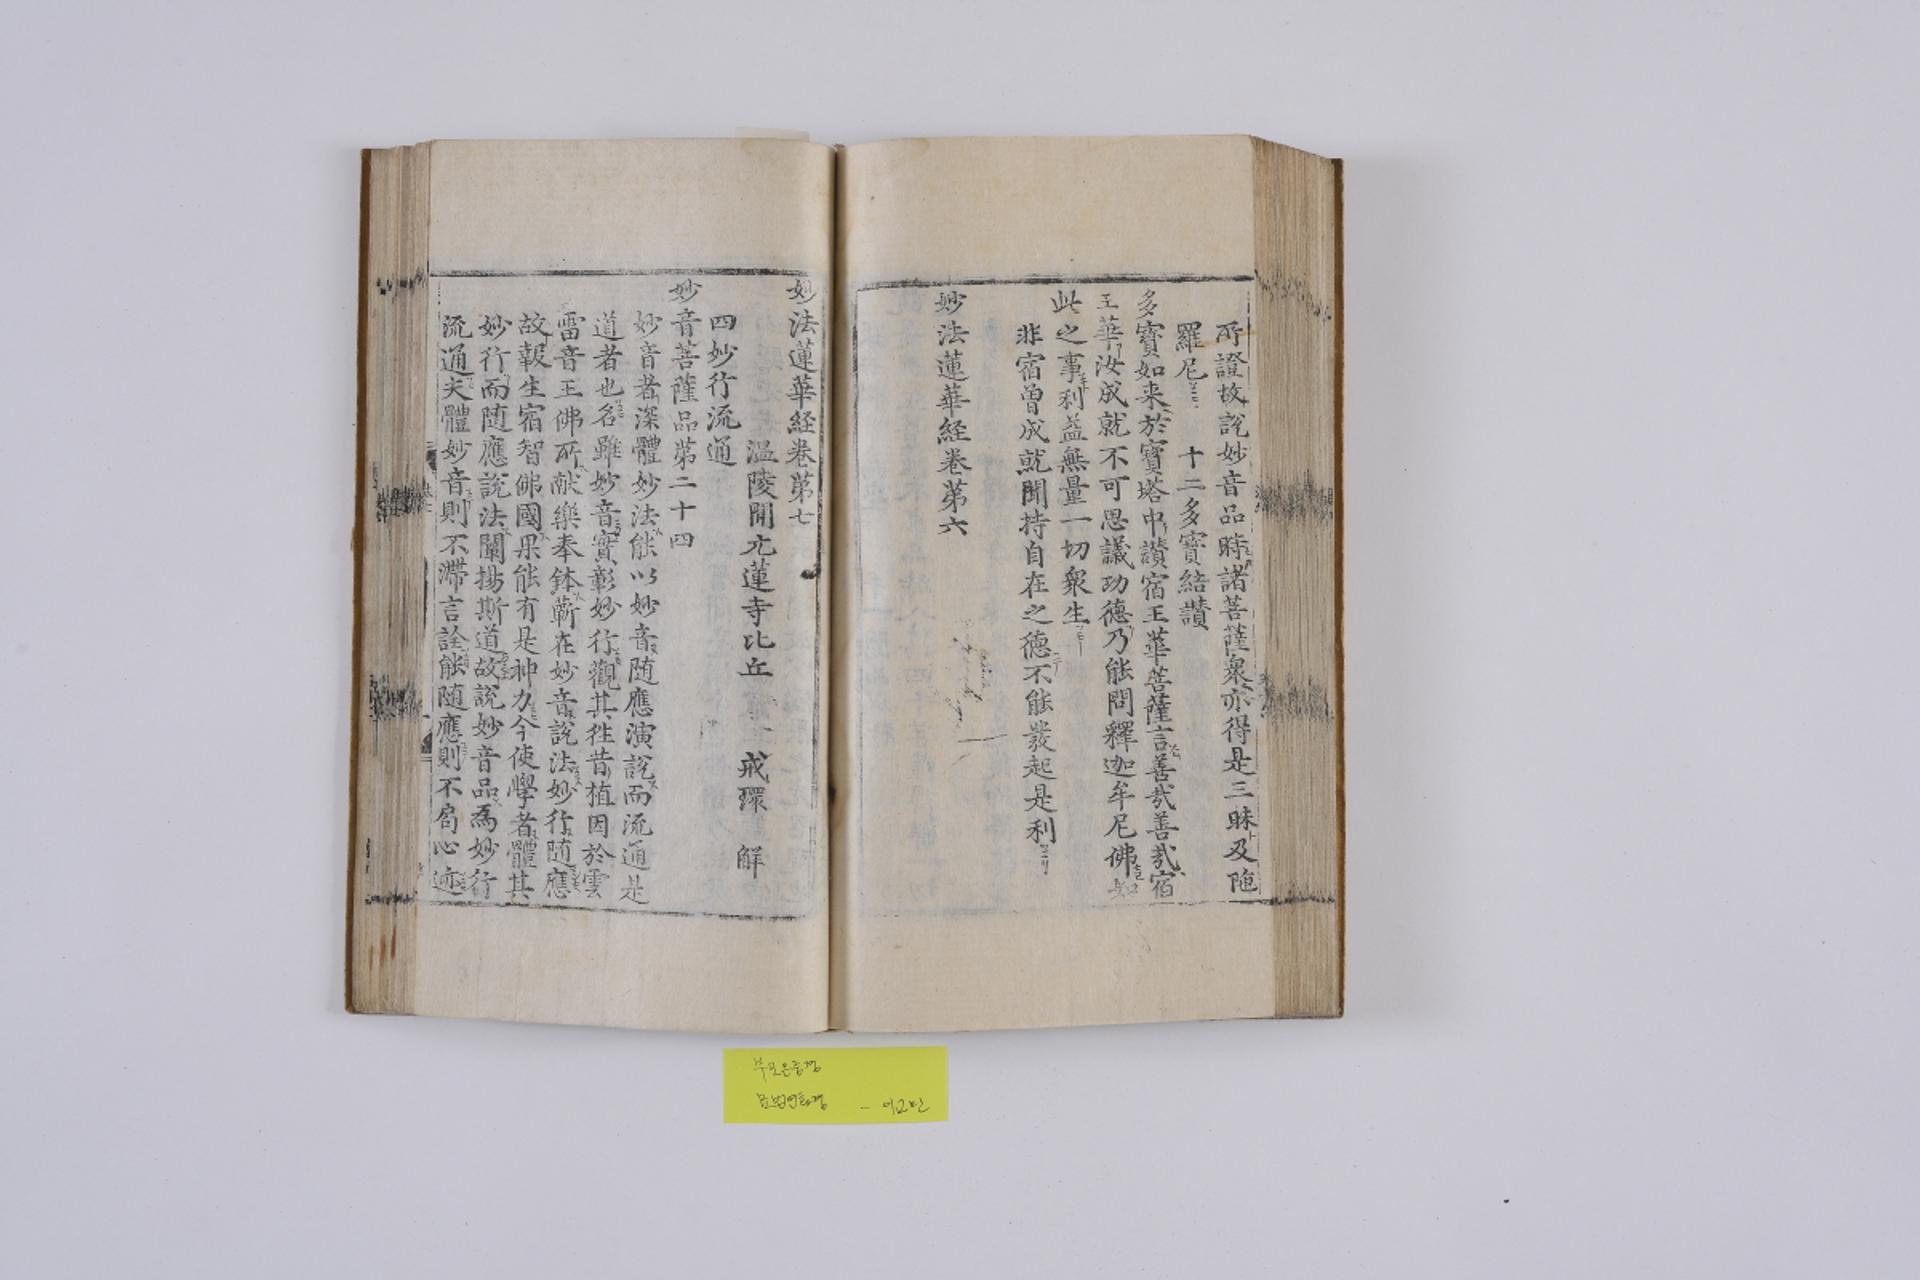 所證故說妙音品時諸菩薩衆亦得是三昧及陁
羅尼 十二多寶結讃
多寶如来於寶塔中讃宿王華菩薩言善㢤善㢤宿
王華汝成就不可思議功德乃能問釋迦牟尼佛如
此之事利益無量一切衆生
非宿曽成就聞持自在之德不能發起是利
妙法蓮華経卷第六
妙法蓮華経卷第七
温陵開元蓮寺比丘 戒環 解
四妙行流通
妙音菩薩品第二十四
妙音者深體妙法能以妙音随應演說而流通是
道者也名雖妙音實彰妙行觀其徃昔植因於雲
雷音王佛所献樂奉鉢蕲在妙音說法妙行随應
故報生宿智佛國果能有是神力今使學者體其
妙行而随應說法闡揚斯道故說妙音品爲妙行
流通夫體妙音則不滯言詮能随應則不局心迹
부모은중경
묘법연화경